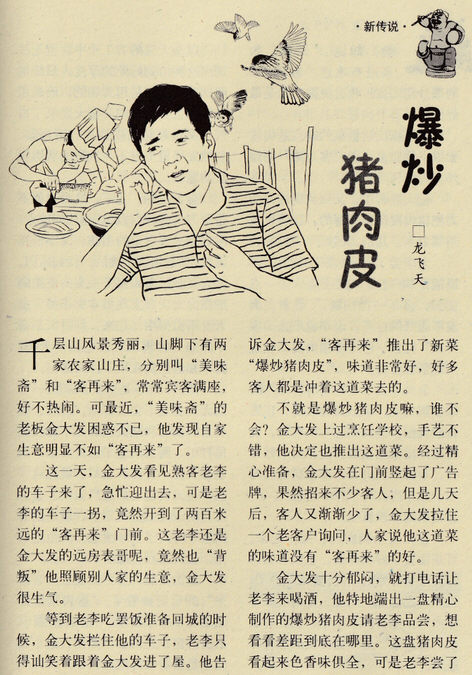 ·新传说·
爆炒
猪肉皮
□龙飞天
千层山风景秀丽，山脚下有两
家农家山庄，分别叫“美味
斋”和“客再来”，常常宾客满座，
好不热闹。可最近，“美味斋”的
老板金大发困惑不已，他发现自家
生意明显不如“客再来”了。
这一天，金大发看见熟客老李
的车子来了，急忙迎出去，可是老
李的车子一拐，竟然开到了两百米
远的“客再来”门前。这老李还是
金大发的远房表哥呢，竟然也“背
叛”他照顾别人家的生意，金大发
很生气。
等到老李吃罢饭准备回城的时
候，金大发拦住他的车子，老李只
得讪笑着跟着金大发进了屋。他告
诉金大发，“客再来”推出了新菜
“爆炒猪肉皮”，味道非常好，好多
客人都是冲着这道菜去的。
不就是爆炒猪肉皮嘛，谁不
会？金大发上过烹饪学校，手艺不
错，他决定也推出这道菜。经过精
心准备，金大发在门前竖起了广告
牌，果然招来不少客人，但是几天
后，客人又渐渐少了，金大发拉住
一个老客户询问，人家说他这道菜
的味道没有“客再来”的好。
金大发十分郁闷，就打电话让
老李来喝酒，他特地端出一盘精心
制作的爆炒猪肉皮请老李品尝，想
看看差距到底在哪里。这盘猪肉皮
看起来色香味俱全，可是老李尝了